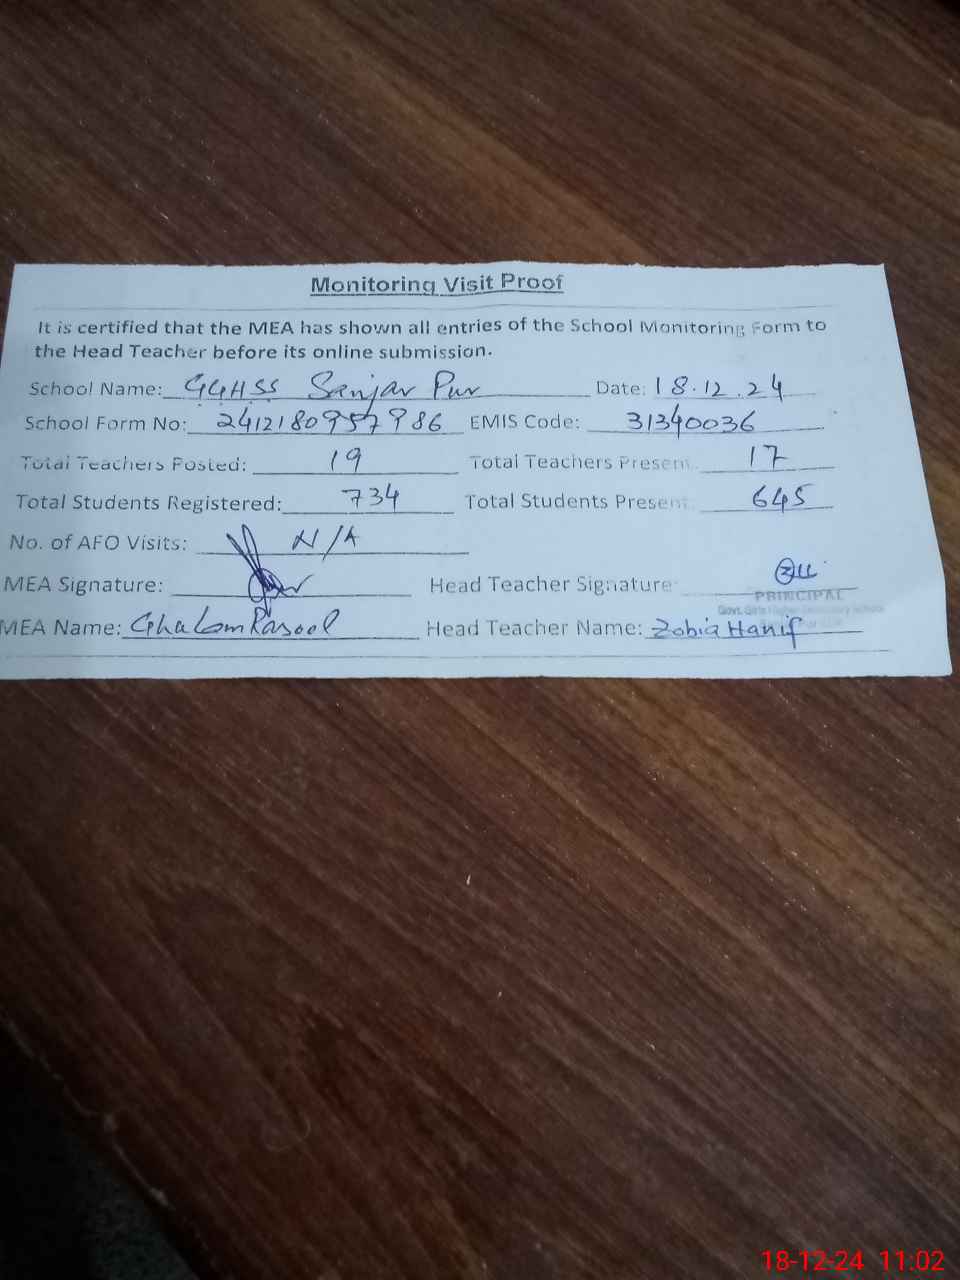 Monitoring Visit Proof
It is certified that the MEA has shown all entries of the School Monitoring Form to
the Head Teacher before its online submission.
School Name: GGHSS Sanjar Pur Date: 18.12.24
School Form No: 2412180957986 EMIS Code: 31340036
Total Teachers Posted: 19 Total Teachers Present: 17
Total Students Registered: 734 Total Students Present: 645
No. of AFO Visits: N/A
MEA Signature: Head Teacher Signature:
PRINCIPAL
Govt. Girls Higher Secondary School
MEA Name: Ghulam Rasool Head Teacher Name: Zobia Hanif
18-12-24 11:02